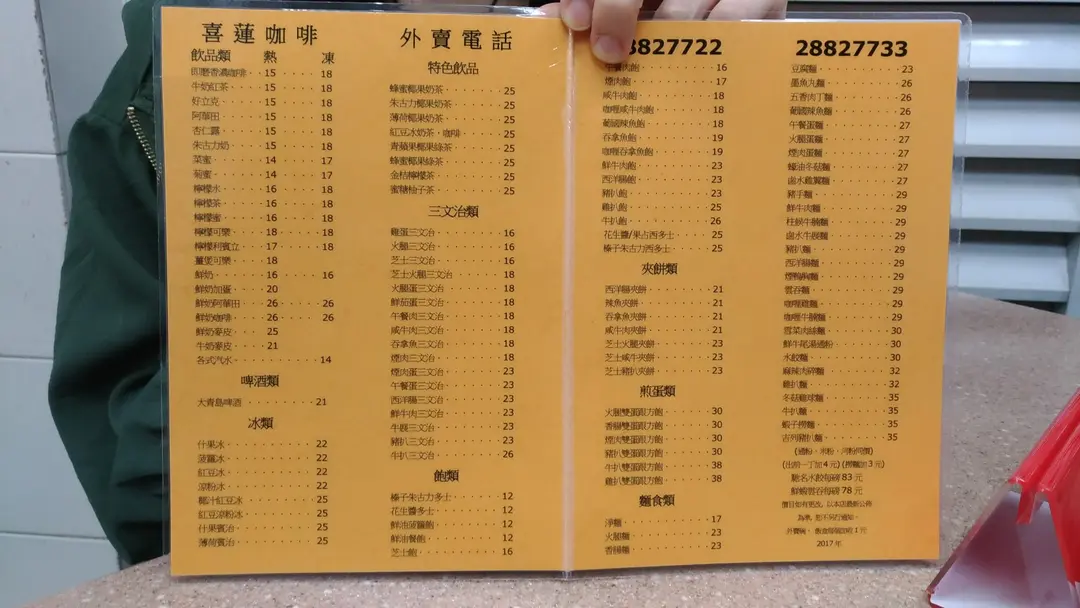 喜蓮咖啡
飲品類 熱 凍
即磨香濃咖啡 15 18
牛奶紅茶 15 18
好立克 15 18
阿華田 15 18
杏仁露 15 18
朱古力奶 15 18
菜蜜 14 17
菊蜜 14 17
檸檬水 16 18
檸檬茶 16 18
檸檬蜜 16 18
檸檬可樂 18 18
檸檬利賓立 17 18
薑煲可樂 18
鮮奶 16 16
鮮奶加蛋 20
鮮奶阿華田 26 26
鮮奶咖啡 26 26
鮮奶麥皮 25
牛奶麥皮 21
各式汽水 14
啤酒類
大青島啤酒 21
冰類
什果冰 22
菠蘿冰 22
紅豆冰 22
涼粉冰 22
椰汁紅豆冰 25
紅豆涼粉冰 25
什果賓治 25
薄荷賓治 25
外賣電話
特色飲品
蜂蜜椰果奶茶 25
朱古力椰果奶茶 25
薄荷椰果奶茶 25
紅豆冰奶茶．咖啡 25
青蘋果椰果綠茶 25
蜂蜜椰果綠茶 25
金桔檸檬茶 25
蜜糖柚子茶 25
三文治類
雞蛋三文治 16
火腿三文治 16
芝士三文治 16
芝士火腿三文治 18
火腿蛋三文治 18
鮮茄蛋三文治 18
午餐肉三文治 18
咸牛肉三文治 18
吞拿魚三文治 18
煙肉三文治 18
煙肉蛋三文治 23
午餐蛋三文治 23
西洋腸三文治 23
鮮牛肉三文治 23
牛展三文治 23
豬扒三文治 23
牛扒三文治 26
飽類
榛子朱古力多士 12
花生醬多士 12
鮮油菠蘿飽 12
鮮油餐飽 12
芝士飽 16
8827722
午餐肉飽 16
煙肉飽 17
咸牛肉飽 18
咖喱咸牛肉飽 18
葡國辣魚飽 18
吞拿魚飽 19
咖喱吞拿魚飽 19
鮮牛肉飽 23
西洋腸飽 23
豬扒飽 23
雞扒飽 25
牛扒飽 26
花生醬/果占西多士 25
榛子朱古力西多士 25
夾餅類
西洋腸夾餅 21
辣魚夾餅 21
吞拿魚夾餅 21
咸牛肉夾餅 21
芝士火腿夾餅 23
芝士咸牛夾餅 23
芝士豬扒夾餅 23
煎蛋類
火腿雙蛋跟方飽 30
香腸雙蛋跟方飽 30
煙肉雙蛋跟方飽 30
豬扒雙蛋跟方飽 30
牛扒雙蛋跟方飽 38
雞扒雙蛋跟方飽 38
麵食類
淨麵 17
火腿麵 23
香腸麵 23
28827733
豆腐麵 23
墨魚丸麵 26
五香肉丁麵 26
葡國辣魚麵 26
午餐蛋麵 27
火腿蛋麵 27
煙肉蛋麵 27
蠔油冬菇麵 27
鹵水雞翼麵 27
豬手麵 29
鮮牛肉麵 29
柱候牛腩麵 29
鹵水牛展麵 29
豬扒麵 29
西洋腸麵 29
煙鴨胸麵 29
雲吞麵 29
咖喱雞麵 29
咖喱牛腩麵 29
雪菜肉絲麵 30
鮮牛尾湯通粉 30
水餃麵 30
麻辣肉碎麵 32
雞扒麵 32
冬菇雞球麵 35
牛扒麵 35
蝦子撈麵 35
吉列豬扒麵 35
(通粉．米粉．河粉同價)
(出前一丁加 4 元) (撈麵加 3 元)
馳名水餃每磅 83 元
鮮蝦雲吞每磅 78 元
價目如有更改，以本店最新公佈
為準，恕不另行通知。
2017 年